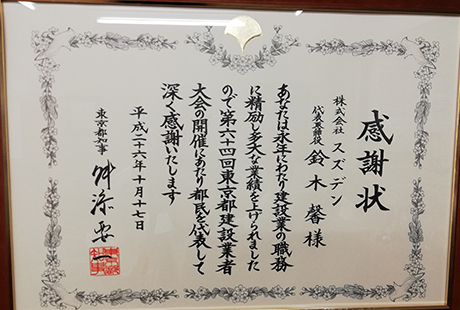 感謝状
株式会社 スズデン
代表取締役 鈴木馨様
あなたは永年にわたり建設業の職務
に精励し多大な業績を上げられました
ので第六十四回東京都建設業者
大会の開催にあたり都民を代表して
深く感謝いたします
平成二十六年十月十七日
東京都知事 舛添要一